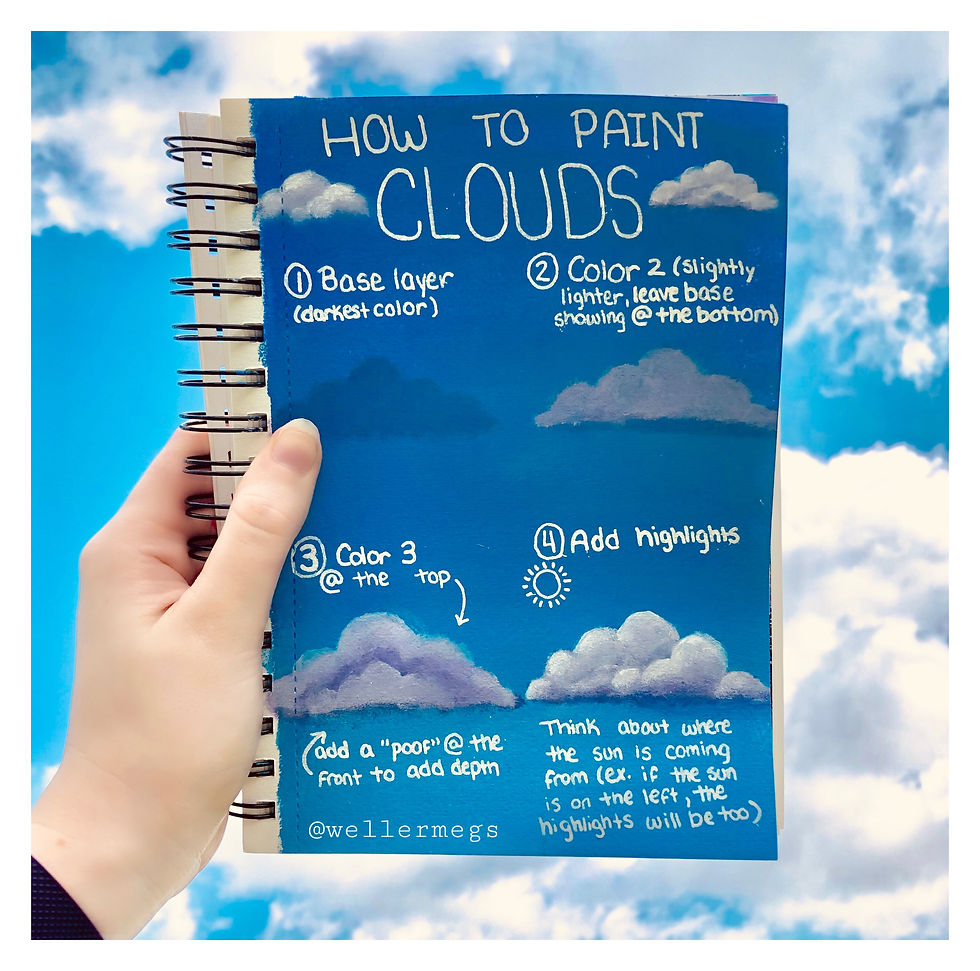 HOW TO PAINT
CLOUDS
① Base layer
(darkest color)
② Color 2 (slightly
lighter, leave base
showing @ the bottom)
③ Color 3
@ the top
add a "poof" @ the
front to add depth
④ Add highlights
Think about where
the sun is coming
from (ex. if the sun
is on the left, the
highlights will be too)
@wellermegs